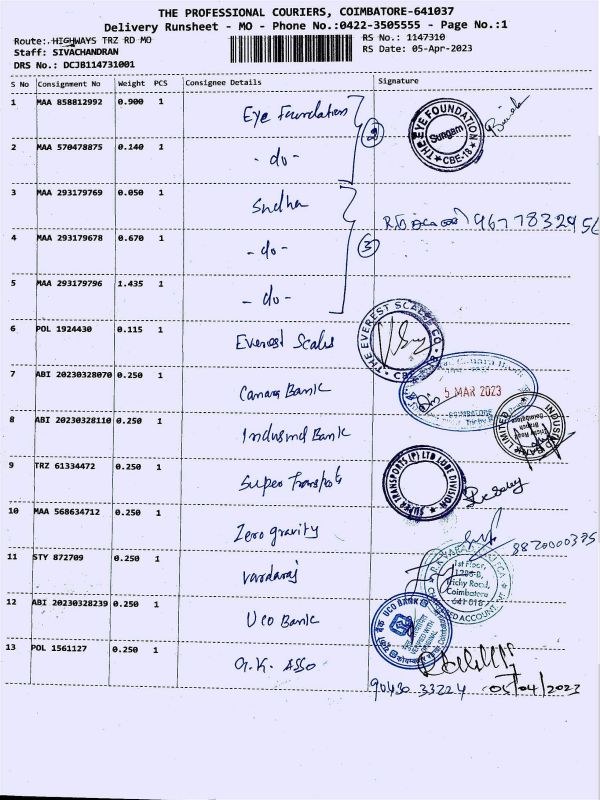 THE PROFESSIONAL COURIERS, COIMBATORE-641037
Delivery Runsheet - MO - Phone No.:0422-3505555 - Page No.:1
Route: HIGHWAYS TRZ RD MO
RS No.: 1147310
Staff: SIVACHANDRAN
RS Date: 05-Apr-2023
DRS No.: DCJB114731001
S No Consignment No Weight PCS Consignee Details Signature
1 MAA 858812992 0.900 1 Eye Foundation
THE EYE FOUNDATION Sungam CBE-18
2 MAA 570478875 0.140 1 - do - 2
3 MAA 293179769 0.050 1 Sudha
4 MAA 293179678 0.670 1 - do - 3
5 MAA 293179796 1.435 1 - do -
6 POL 1924430 0.115 1 Everest Scales
THE EVEREST SCALES CO. CBE-18
7 ABI 20230328070 0.250 1 Canara Bank
5 MAR 2023
COIMBATORE
8 ABI 20230328110 0.250 1 Indusind Bank
INDUSIND BANK LIMITED
9 TRZ 61334472 0.250 1 Super Transports
SUPER TRANSPORTS (P) LTD LUBE DIVISION
10 MAA 568634712 0.250 1 Zero gravity
11 STY 872709 0.250 1 Vardaraj
1st Floor,
1286-B,
Trichy Road,
Coimbatore
641 018
12 ABI 20230328239 0.250 1 Uco Bank
UCO BANK
13 POL 1561127 0.250 1 G.K. Asso
90430 33224 05/04/2023